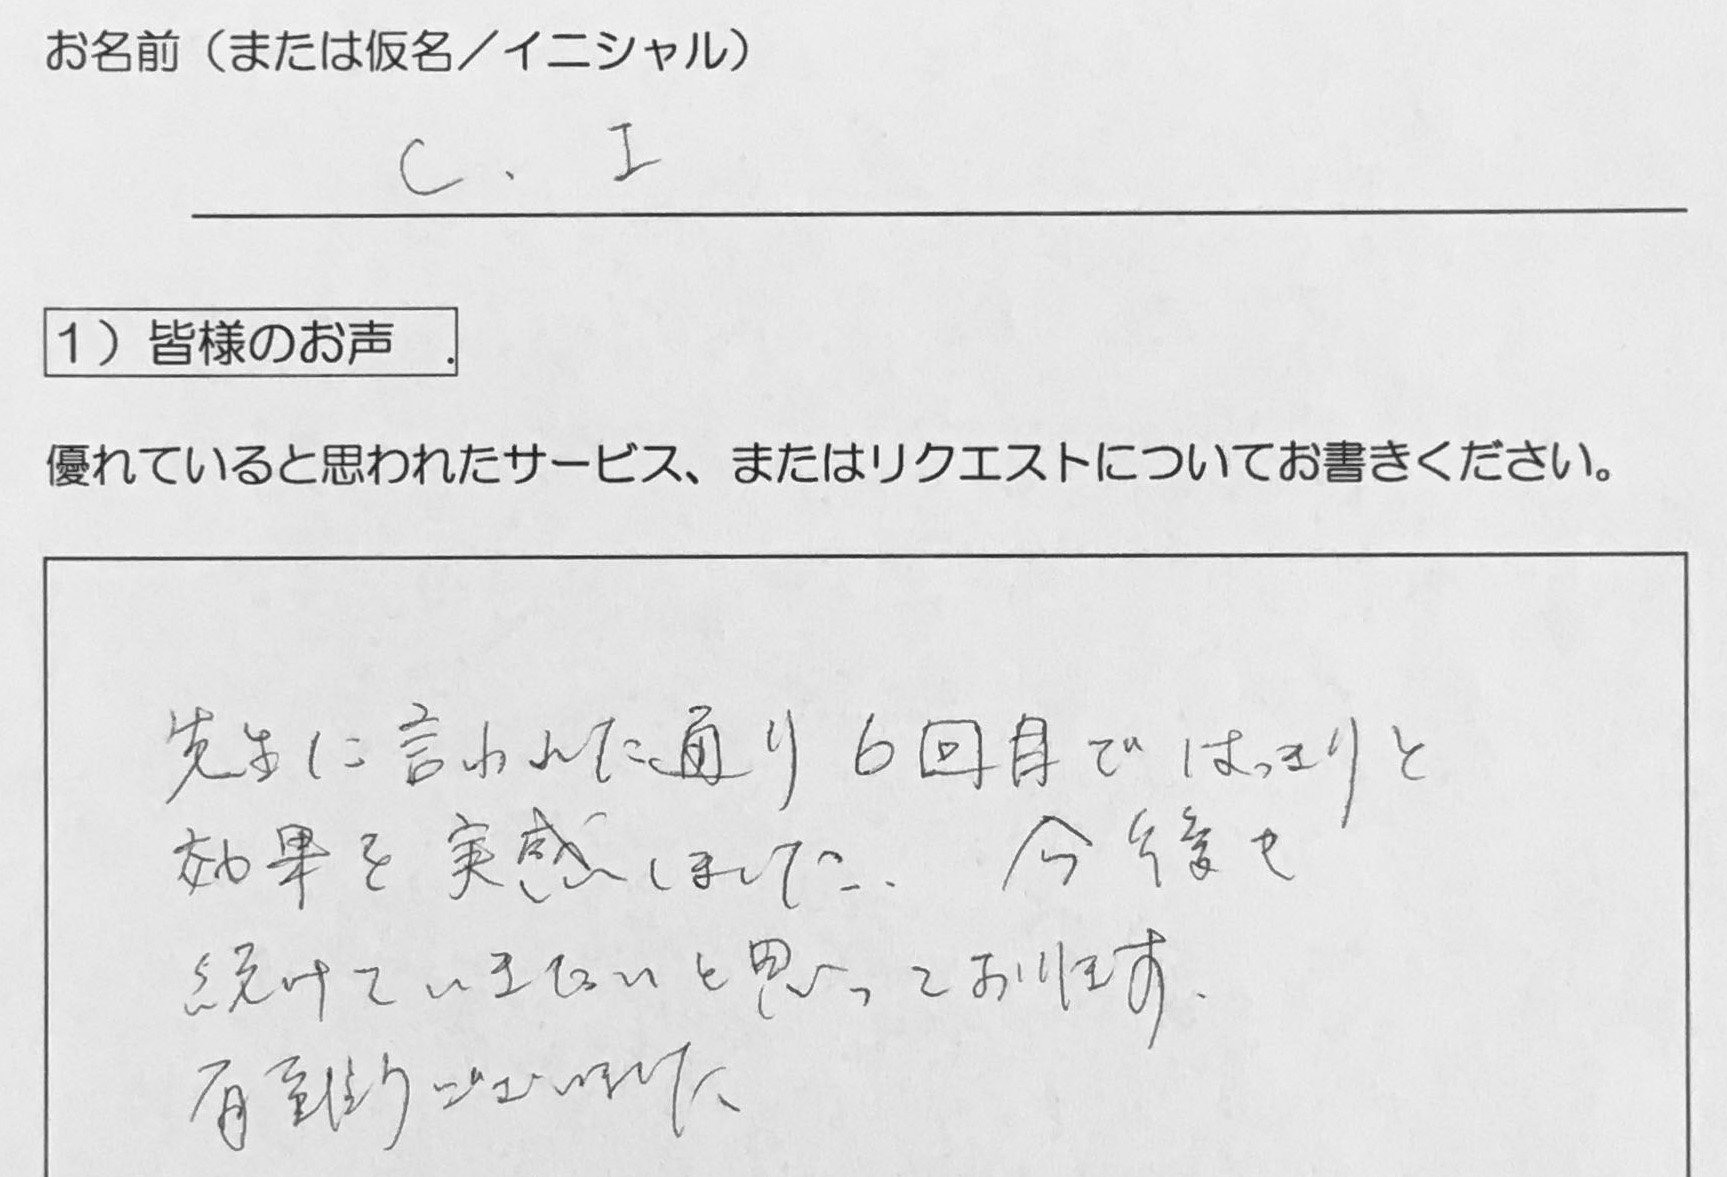 お名前（または仮名／イニシャル）
C. I
1）皆様のお声 .
優れていると思われたサービス、またはリクエストについてお書きください。
先生に言われた通り 6回目で はっきりと
効果を実感しました. 今後も
続けていきたいと思っております.
有難うございました、